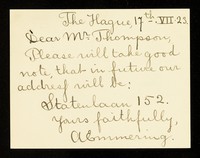 The Hague, 17th. VII-23.
Dear Mr. Thompson,
Please will take good
note, that in future our
address will be:
Statenlaan 152.
yours faithfully,
A. Emmering.